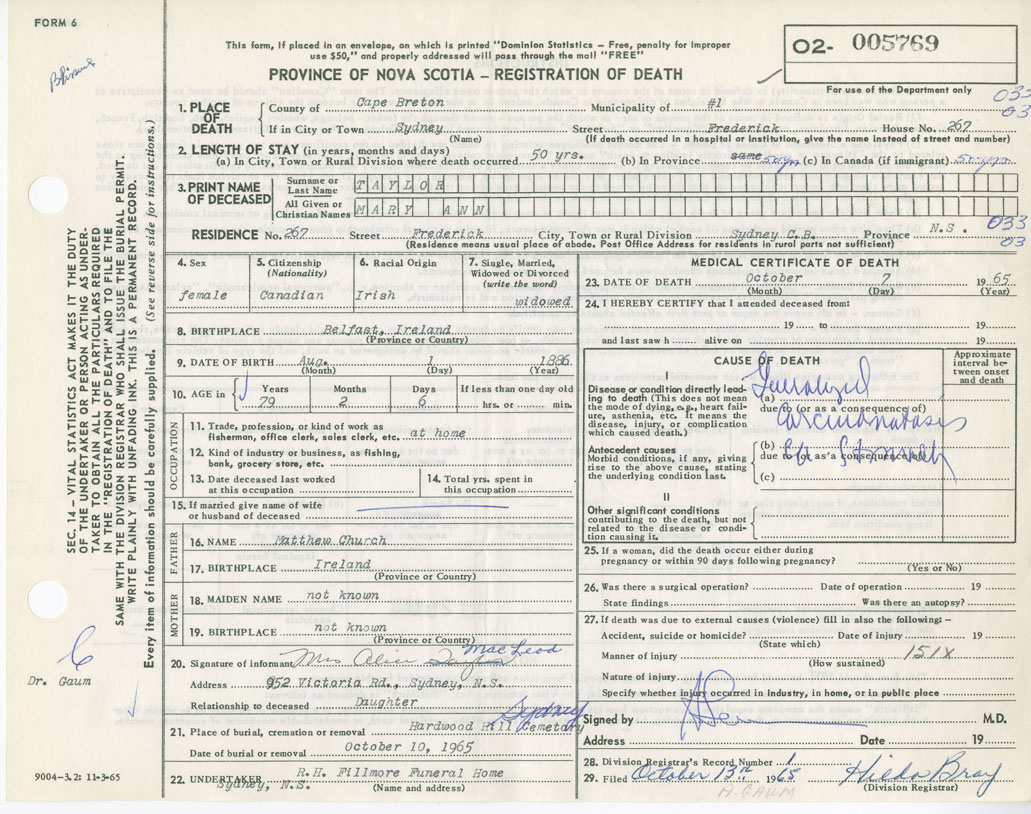 FORM 6
This form, if placed in an envelope, on which is printed "Dominion Statistics – Free, penalty for improper
use $50," and properly addressed will pass through the mail "FREE"
PROVINCE OF NOVA SCOTIA – REGISTRATION OF DEATH
02- 005769
For use of the Department only
033
03
1. PLACE OF DEATH
County of Cape Breton Municipality of #1
If in City or Town Sydney Street Frederick House No. 267
(Name) (If death occurred in a hospital or institution, give the name instead of street and number)
2. LENGTH OF STAY (in years, months and days)
(a) In City, Town or Rural Division where death occurred 50 yrs. (b) In Province same 50 yrs (c) In Canada (if immigrant) 50 yrs
3. PRINT NAME OF DECEASED
Surname or Last Name TAYLOR
All Given or Christian Names MARY ANN
RESIDENCE No. 267 Street Frederick City, Town or Rural Division Sydney C.B. Province N.S.
033
03
(Residence means usual place of abode. Post Office Address for residents in rural parts not sufficient)
4. Sex
female
5. Citizenship
(Nationality)
Canadian
6. Racial Origin
Irish
7. Single, Married,
Widowed or Divorced
(write the word)
widowed
8. BIRTHPLACE Belfast, Ireland
(Province or Country)
9. DATE OF BIRTH Aug. 1 1886
(Month) (Day) (Year)
10. AGE in
Years Months Days If less than one day old
79 2 6 hrs. or min.
OCCUPATION
11. Trade, profession, or kind of work as
fisherman, office clerk, sales clerk, etc. at home
12. Kind of industry or business, as fishing,
bank, grocery store, etc.
13. Date deceased last worked
at this occupation
14. Total yrs. spent in
this occupation
15. If married give name of wife
or husband of deceased
FATHER
16. NAME Matthew Church
17. BIRTHPLACE Ireland
(Province or Country)
MOTHER
18. MAIDEN NAME not known
19. BIRTHPLACE not known
(Province or Country)
20. Signature of informant Mrs Alice Taylor MacLeod
Address 952 Victoria Rd., Sydney, N.S.
Relationship to deceased Daughter
21. Place of burial, cremation or removal Hardwood Hill Cemetary Sydney
Date of burial or removal October 10, 1965
22. UNDERTAKER R.H. Fillmore Funeral Home
Sydney, N.S. (Name and address)
MEDICAL CERTIFICATE OF DEATH
23. DATE OF DEATH October 7 1965
(Month) (Day) (Year)
24. I HEREBY CERTIFY that I attended deceased from:
19 to 19
and last saw h alive on 19
CAUSE OF DEATH
Approximate
interval be-
tween onset
and death
I
Disease or condition directly lead-
ing to death (This does not mean
the mode of dying, e.g., heart fail-
ure, asthenia, etc. It means the
disease, injury, or complication
which caused death.)
(a) Generalized
due to (or as a consequence of)
Carcinomatosis
Antecedent causes
Morbid conditions, if any, giving
rise to the above cause, stating
the underlying condition last.
(b)
due to (or as a consequence of)
Stomach
(c)
II
Other significant conditions
contributing to the death, but not
related to the disease or condi-
tion causing it.
25. If a woman, did the death occur either during
pregnancy or within 90 days following pregnancy?
(Yes or No)
26. Was there a surgical operation? Date of operation 19
State findings Was there an autopsy?
27. If death was due to external causes (violence) fill in also the following:–
Accident, suicide or homicide? Date of injury 19
(State which)
Manner of injury 151X
(How sustained)
Nature of injury
Specify whether injury occurred in industry, in home, or in public place
Signed by M.D.
Address Date 19
28. Division Registrar's Record Number 1
29. Filed October 13th 1965 Hilda Bray
(Division Registrar)
D. GAUM
SEC. 14 – VITAL STATISTICS ACT MAKES IT THE DUTY
OF THE UNDERTAKER OR PERSON ACTING AS UNDER-
TAKER TO OBTAIN ALL THE PARTICULARS REQUIRED
IN THE "REGISTRATION OF DEATH" AND TO FILE THE
SAME WITH THE DIVISION REGISTRAR WHO SHALL ISSUE THE BURIAL PERMIT.
WRITE PLAINLY WITH UNFADING INK. THIS IS A PERMANENT RECORD.
Every item of information should be carefully supplied. (See reverse side for instructions.)
Dr. Gaum
9004-3.2: 11-3-65